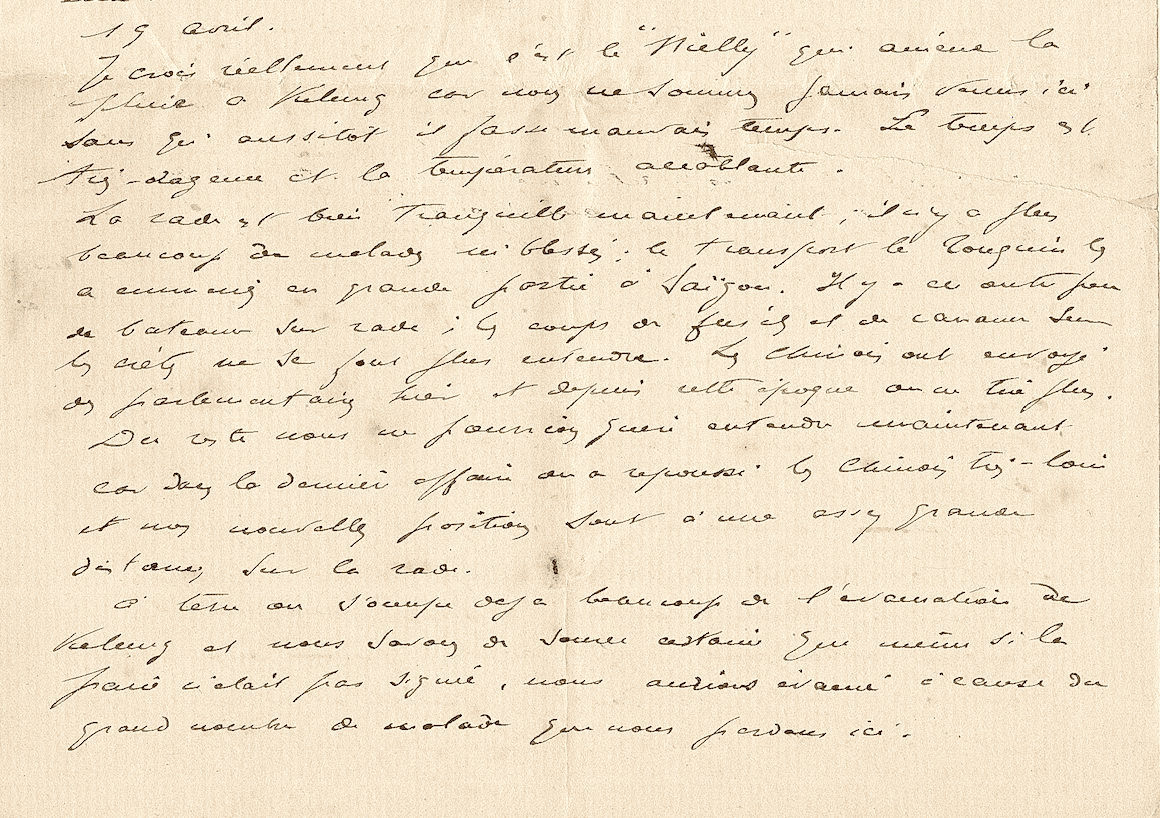 19 avril.
Je crois réellement que c'est le "Nielly" qui amène la
pluie a Kelung car nous ne sommes jamais venus ici
sans qu'aussitôt il fasse mauvais temps. Le temps est
très-orageux et la température accablante.
La rade est bien tranquille maintenant ; il n'y a plus
beaucoup de malades ni blessés ; le transport le Tonquin les
a emmenés en grande partie à Saïgon. Il y a en outre peu
de bateaux sur rade ; les coups de fusils et de canons sur
les crêtes ne se font plus entendre. Les Chinois ont envoyé
des parlementaires hier et depuis cette époque on ne tire plus.
Du reste nous ne pourrions guère entendre maintenant
car dans la dernière affaire on a repoussé les Chinois très-loin
et nos nouvelles positions sont à une assez grande
distance, sur la rade.
à terre on s'occupe deja beaucoup de l'évacuation de
Kelung et nous savons de source certaine que même si la
paix n'était pas signée, nous aurions évacué à cause du
grand nombre de malades que nous perdons ici.